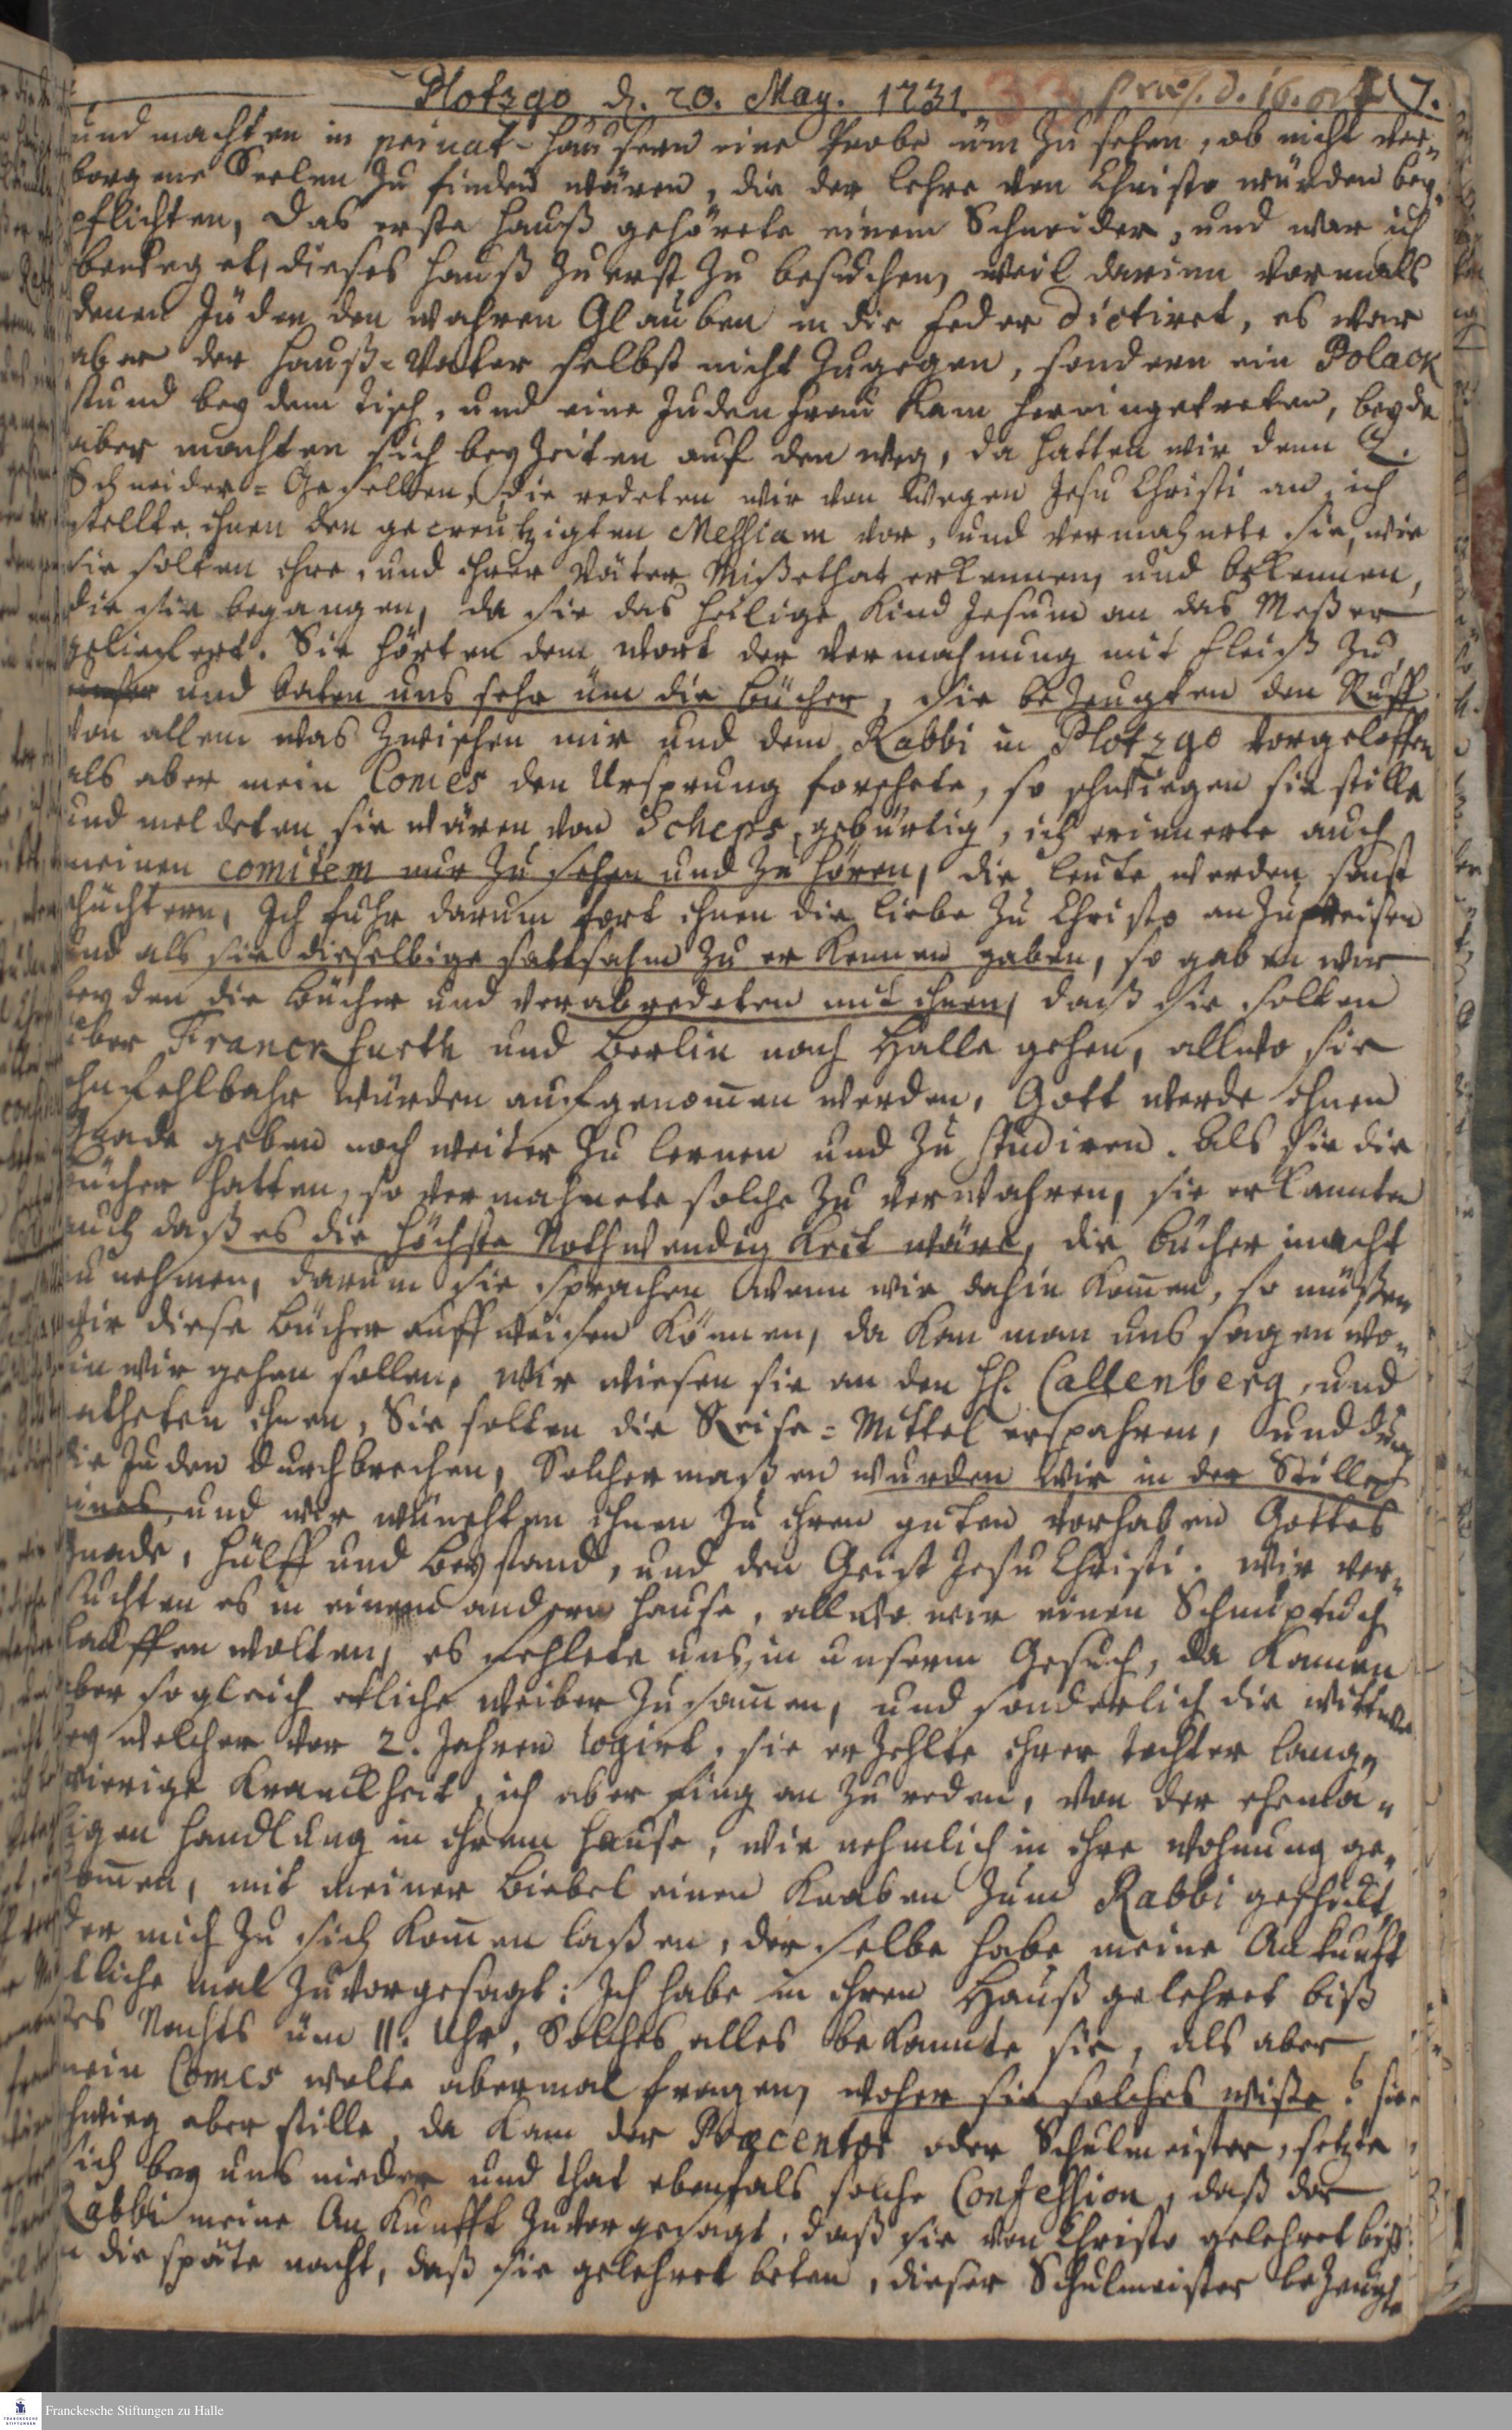 Plotzgo d. 20. May. 1731. 33 præs. d. 16. oct 7.
und machten in privat-häusern eine Probe üm zu sehen, ob nicht ver„
borgene Seelen zu finden wären, die der lehre von Christo würden bey„
pflichten, Das erste hauß gehörete einem Schneider, und war ich
beweget, dieses hauß zu erst zu besuchen, weil darinn vormals
denen Juden den wahren Glauben in die feder dictiret, es war
aber der hauß-Vatter selbst nicht zugegen, sondern ein Polack
stund bey dem tisch, und eine Juden frau kam hereingetreten, beyde
aber machten sich bey zeiten auf den weg, da hatten wir denn 2.
Schneider-Gesellen, die redeten wir von wegen Jesu Christi an, ich
stellte ihnen den gecreutzigten Messiam vor, und vermahnete sie, wie
sie solten ihre, und ihrer Väter Mißethat erkennen, und bekennen,
die sie begangen, da sie das heilige kind Jesum an das Meßer
geliefert. Sie hörten dem wort der vermahnung mit fleiß zu,
und baten uns sehr üm die bücher, sie bezeugten den Ruff
von allem was zwischen mir und dem Rabbi in Plotzgo vorgeloffen
als aber mein Comes den Ursprung forschete, so schwiegen sie stille
und meldeten sie wären von Scheps gebürtig, ich erinnerte auch
meinen comitem nur zu sehen und zu hören, die leute werden sonst
schüchtern, Ich fuhr darum fort ihnen die liebe zu Christo anzupreisen
und als sie dieselbige sattsahm zu erkennen gaben, so gaben wir
beyden die bücher und verabredeten mit ihnen, daß sie solten
über Franckfurth und Berlin nach Halle gehen, allwo sie
ohnfehlbahr würden aufgenom̄en werden, Gott werde ihnen
Gnade geben noch weiter zu lernen und zu studiren. Als sie die
bücher hatten, so vermahnete solche zu verwahren, sie erkannten
auch daß es die höchste Nothwendigkeit wäre, die bücher in acht
zu nehmen, darum sie sprachen wenn wir dahin kom̄en, so müßen
wir diese bücher auffweisen können, da kan man uns sagen wo„
hin wir gehen sollen, wir wiesen sie an den H. Callenberg, und
ratheten ihnen, Sie solten die Reise-Mittel erspahren, und durch
die Juden durchbrechen, Solchermaßen wurden wir in der Stille
eines, und wir wünschten ihnen zu ihrem guten vorhaben Gottes
Gnade, hülff und beystand, und den Geist Jesu Christi. Wir ver„
suchten es in einem andern hause, allwo wir einen Schnuptuch
kauffen wolten, es fehlete uns in unserm Gesuch, da kamen
aber sogleich etliche weiber zusam̄en, und sonderlich die wittwe
bey welcher vor 2. Jahren logirt, sie erzehlte ihrer tochter lang„
wierige kranckheit, ich aber fing an zu reden, von der ehema„
ligen handlung in ihrem hause, wie nehmlich in ihre wohnung ge„
kom̄en, mit meiner biebel einen knaben zum Rabbi geschickt,
der mich zu sich kom̄en laßen, derselbe habe meine Ankunft
etliche mal zuvorgesagt: Ich habe in ihren Hauß gelehret biß
des Nachts üm 11. Uhr, Solches alles bekannte sie, als aber
mein Comes wolte abermal fragen, woher sie solches wiße? sie
schwieg aber stille, da kam der Præcentor oder Schulmeister, setzte
sich bey uns nieder und that ebenfals solche Confession, daß der
Rabbi meine Ankunfft zuvorgesagt, daß sie von Christo gelehret biß
in die späte nacht, daß sie gelehret beten, dieser Schulmeister bezeugte
Franckesche Stiftungen zu Halle